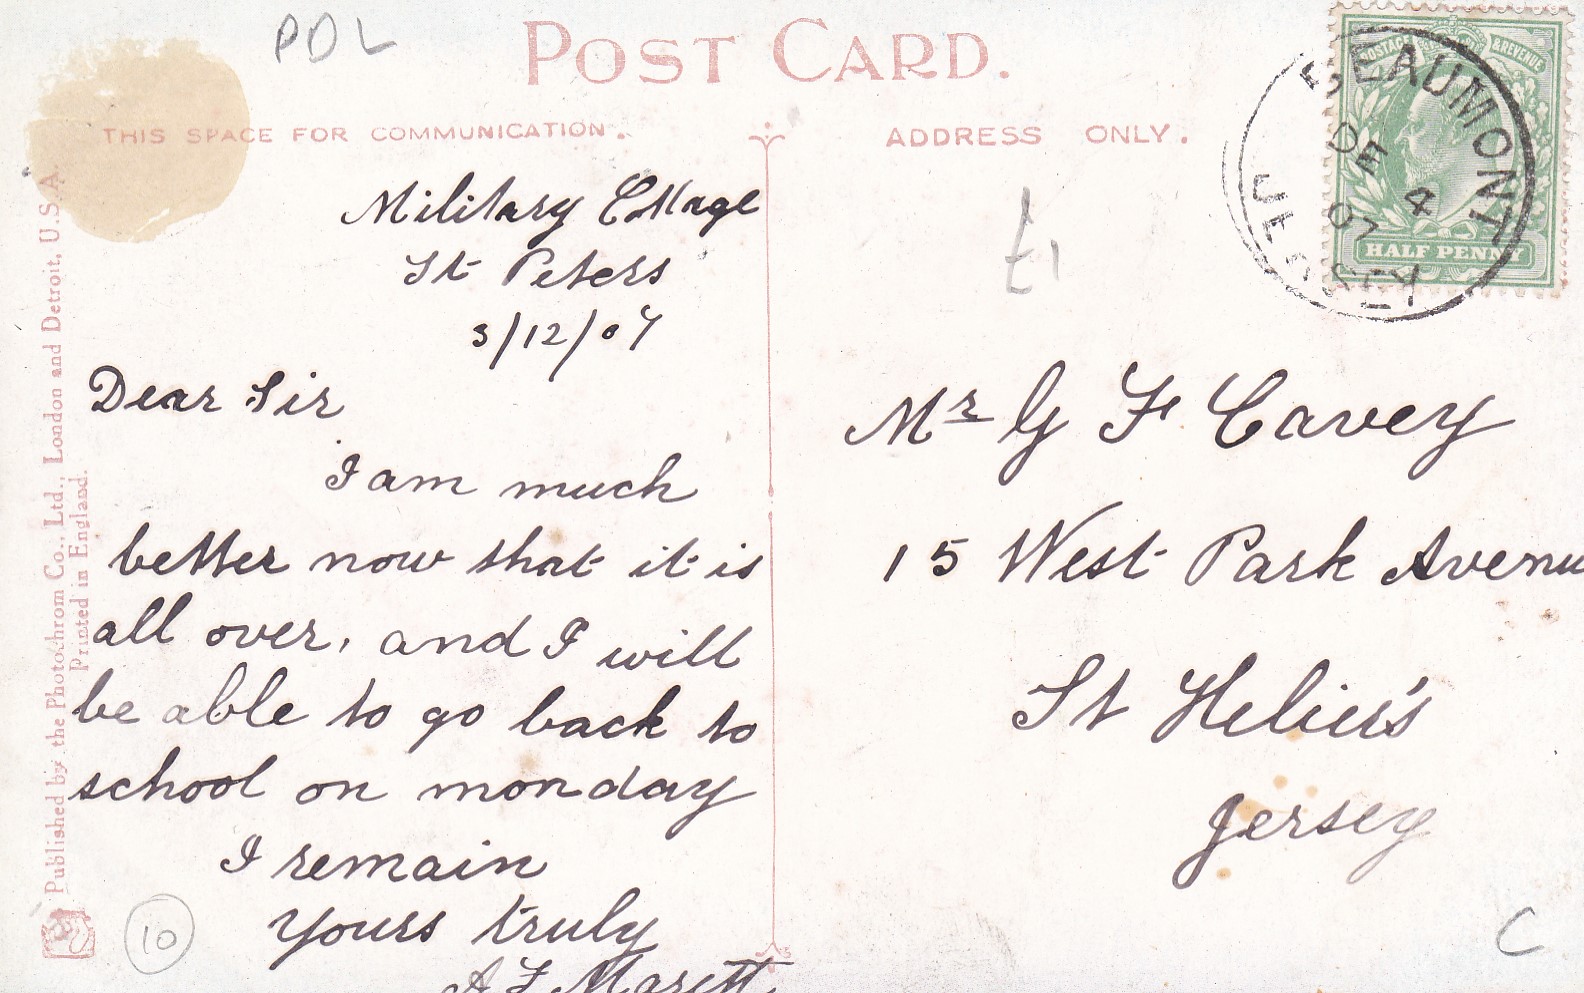 PDL
POST CARD.
THIS SPACE FOR COMMUNICATION.
ADDRESS ONLY.
POSTAGE & REVENUE
HALF PENNY
BEAUMONT
DE 4
07
JERSEY
£1
Military Cottage
St Peters
3/12/07
Dear Sir
I am much
better now that it is
all over, and I will
be able to go back to
school on monday
I remain
Yours truly
A F Marett
Mr G F Cavey
15 West Park Avenu
St Helier's
Jersey
Published by the Photochrom Co., Ltd., London and Detroit, U.S.A.
Printed in England.
10
C